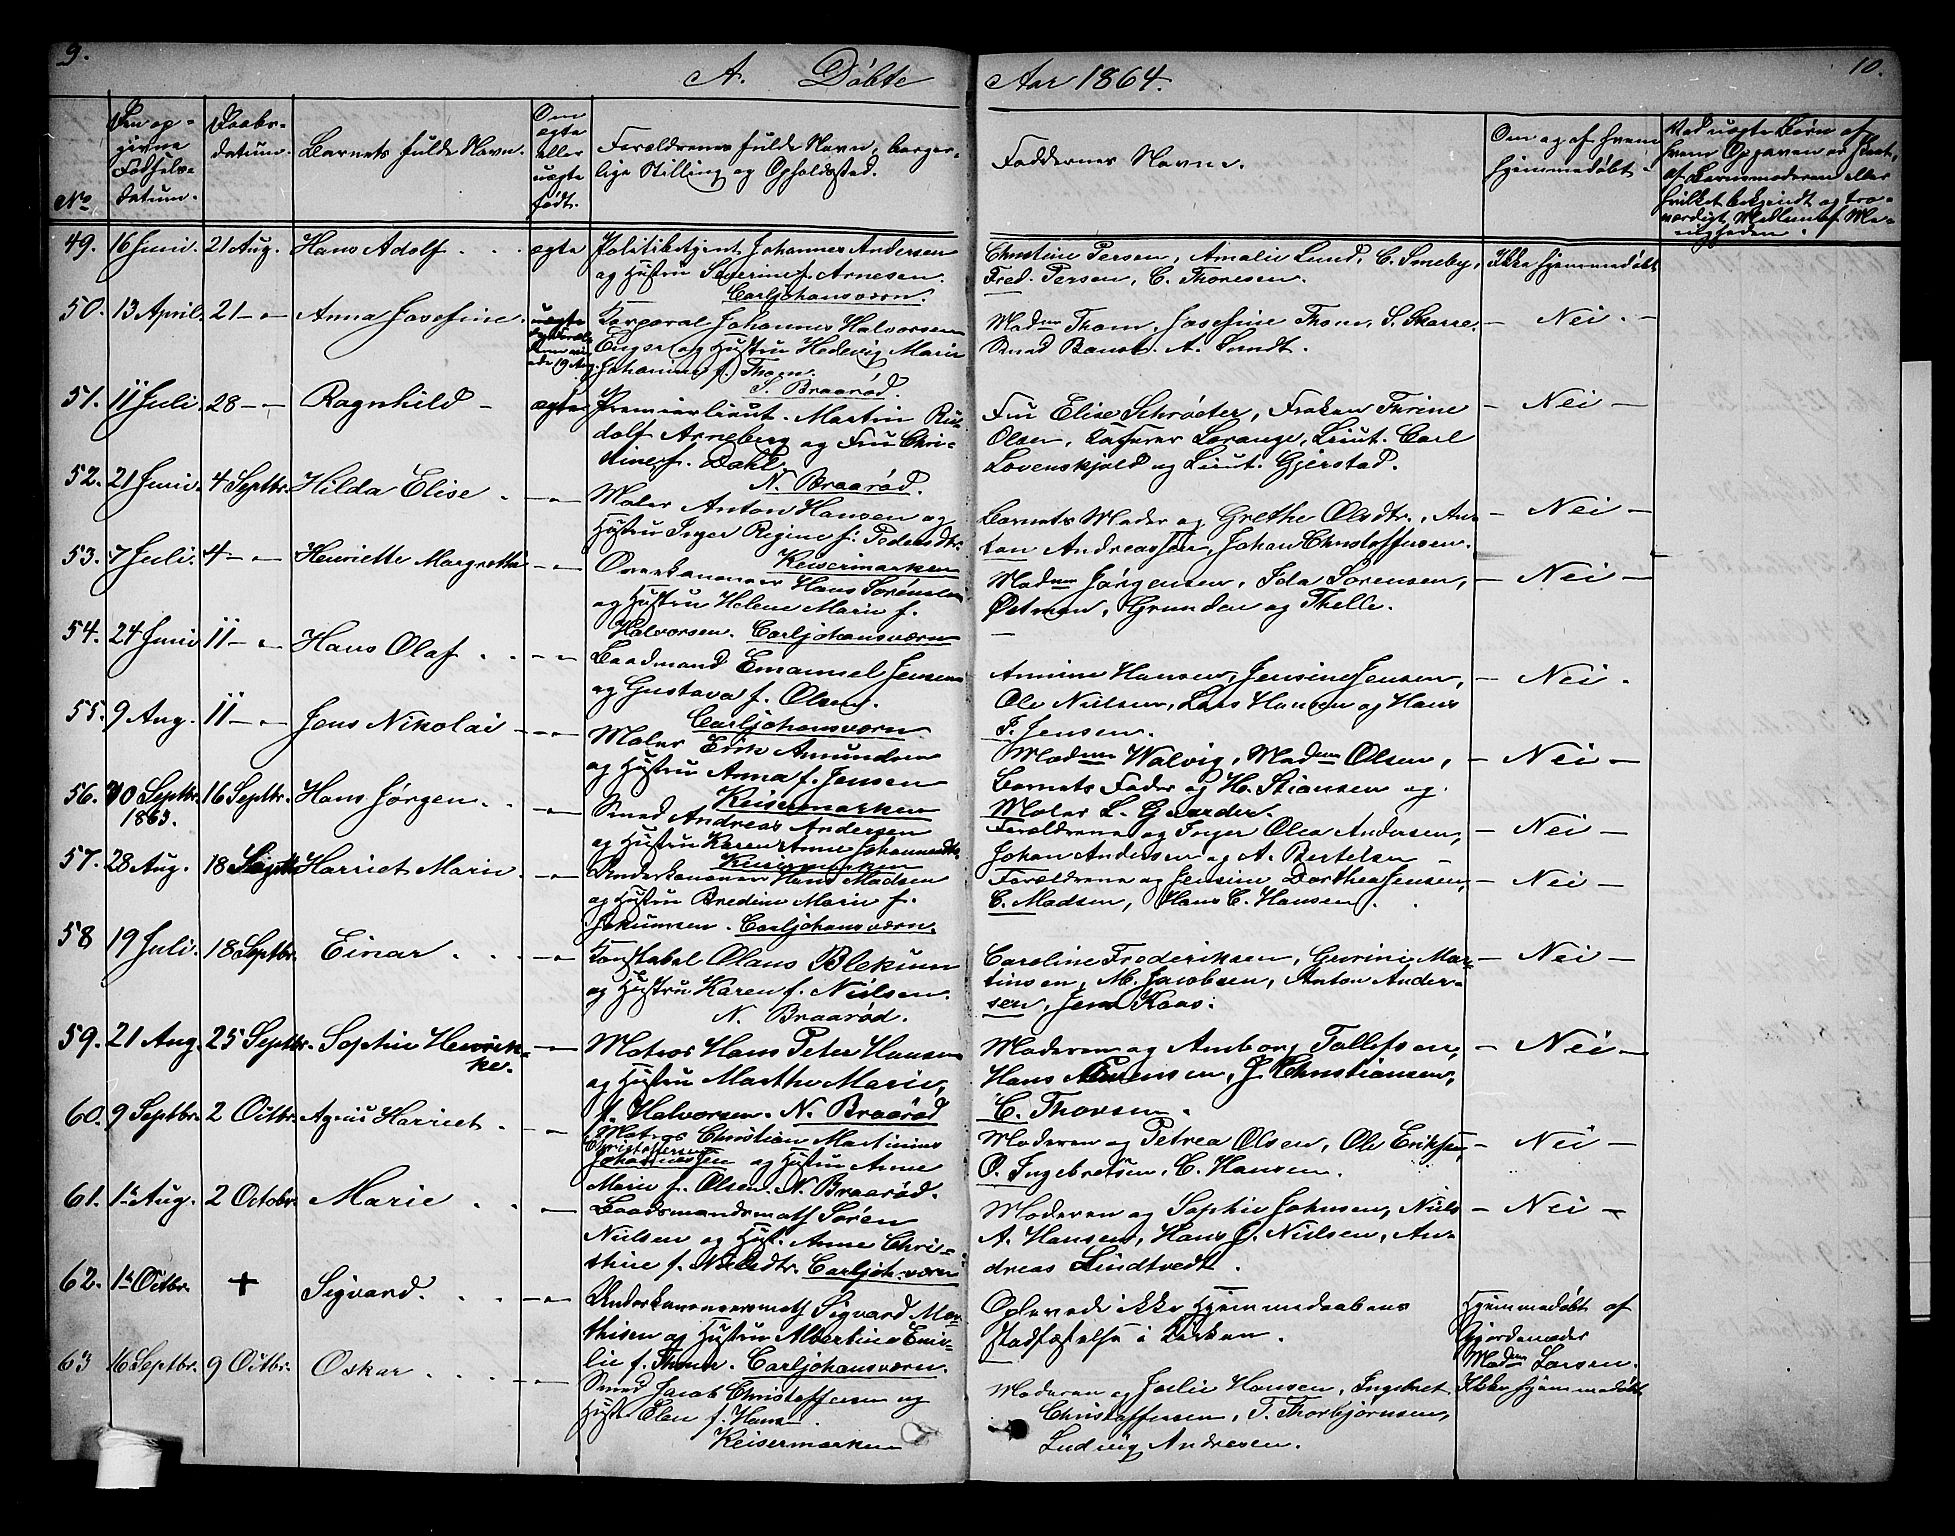 9.
A. Döbte
Aar 1864.
10.
No
Den op-
givne
Fødsels-
datum.
Daabs-
datum.
Barnets fulde Navn.
Om
ægte
eller
uægte
født.
Forældrenes fulde Navn, borger-
lige Stilling og Opholdssted.
Faddernes Navne.
Om og af hvem
hjemmedøbt.
Ved uægte Børn af
hvem Opgaven er skeet,
af Barnemoderen eller
hvilket bekjendt og tro-
værdigt Medlem af Me-
nigheden.
49. 16 Juni. 21 Aug. Hans Adolf . . . ægte
Politibetjent Johannes Andersen
og Hustru Severine f. Arnesen.
Carljohansværn.
Christine Persen, Amalie Lund, C. Smeby,
Fred. Persen, C. Thoresen.
Ikke hjemmedøbt
50. 13 April. 21 – " – Anna Josefine. uægte
Korporal Johannes Halvorsen
Enger og Hustru Hedevig Marie
Johanine f. Thom.
S. Braarød.
Madme Thom, Josefine Thom, S. Skarre,
Smed Banst. A. Lundt.
– Nei. –
51. 11 Juli. 28 – " – Ragnhild – ægte
Premierlieut. Martin Ru-
dolf Arneberg og Fru Chri-
stine f. Dahl.
N. Braarød.
Fru Elise Schrøeter, Frøken Thrine
Olsen, Kasserer Lorange, Lieut. Carl
Lovenskjold og Lieut. Gjerstad.
– Nei –
52. 21 Juni. 4 Septbr. Hilda Elise . – " –
Maler Anton Hansen og
Hustru Inger Regine f. Pedersdtr.
Keisermarken
Barnets Moder og Grethe Olsdtr., An-
ton Andreassen, Johan Christoffersen.
– Nei –
53. 7 Juli. 4 – " – Henriette Margrethe – " –
Overkanoneer Hans Sørensen
og Hustru Helene Marie f.
Halvorsen. Carljohansværn
Madme Jørgensen, Ida Sørensen,
Østmoen, Grunden og Thelle.
– Nei –
54. 24 Juni 11 – " – Hans Olaf . . – " –
Baadmand Emanuel Jensen
og Gustava f. Olsen.
Carljohansværn
Annine Hansen, Jensine Jensen,
Ole Nielsen, Lars Hansen og Hans
J. Jensen.
– Nei .
55. 9 Aug. 11 – " – Jens Nikolai – – " –
Maler Erik Amundsen
og Hustru Anna f. Jensen
Keisermarken
Madme Walvig, Madme Olsen,
Barnets Fader og H. Stiansen og
Maler L. Gaarder.
– Nei –
56. 10 Septbr. 16 Septbr. Hans Jørgen. . – " –
1863.
Smed Andreas Andersen
og Hustru Karen Anne Johannesdtr.
Keisermarken
Forældrene og Inger Olea Andersen,
Johan Andersen og A. Bertelsen –
– Nei –
57. 28 Aug. 18 Septbr. Harriet Marie . – " –
Underkanoneer Hans Madsen
og Hustru Bredine Marie f.
Carljohansværn.
Forældrene og Jensine Dorthea Jensen,
C. Madsen, Hans C. Hansen .
– Nei –
58 19 Juli. 18 Septbr. Einar . . . – " –
Konstabel Olaus Blekum
og Hustru Karen f. Nielsen.
N. Braarød.
Caroline Frederiksen, Gurine Mar-
tinsen, M. Jacobsen, Anton Ander-
sen, Jens Kaas.
– Nei –
59. 21 Aug. 25 Septbr. Sophie Henrik- – " –
ke.
Matros Hans Peter Hansen
og Hustru Marthe Marie,
f. Halvorsen. N. Braarød
Moderen og Amborg Tollefsen,
Hans Sørensen, J. Christiansen,
C. Thorsen.
– Nei –
60. 9 Septbr. 2 Octbr. Agnes Harriet . – " –
Matros Christian Martinius
Christoffersen
Johannessen og Hustru Anne
Marie f. Olsen. N. Braarød.
Moderen og Petrea Olsen, Ole Eriksen,
O. Ingebretsen, C. Hansen.
– Nei –
61. 1te Aug. 2 Octobr. Marie . . – " –
Baadsmandsmath Søren
Nielsen og Hust. Anne Chri-
stine f. Nielsdtr. Carljoh.værn
Moderen og Sophie Johnsen, Niels
A. Hansen, Hans C. Nielsen, An-
dreas Lindtvedt.
– Nei –
62. 1te Octbr. + Sigvard. . . – " –
Underkanoneersmath Sigvard Ma-
thisen og Hustru Albertine Emi-
lie f. Thoner. Carljohansværn.
Oplevede ikke Hjemmedaabens
Stadfæstelse i Kirken.
Hjemmedøbt af
Gjordemoder
Madme Larsen.
63 16 Septbr. 9 Octbr. Oskar . . . . – " –
Smed Jacob Christoffersen og
Hustr. Elen f. Hansen.
Keisermarken
Moderen og Joslie Hansen, Ingebret
Christoffersen, T. Thorbjørnsen,
Ludvig Andresen.
Ikke hjemmedøbt